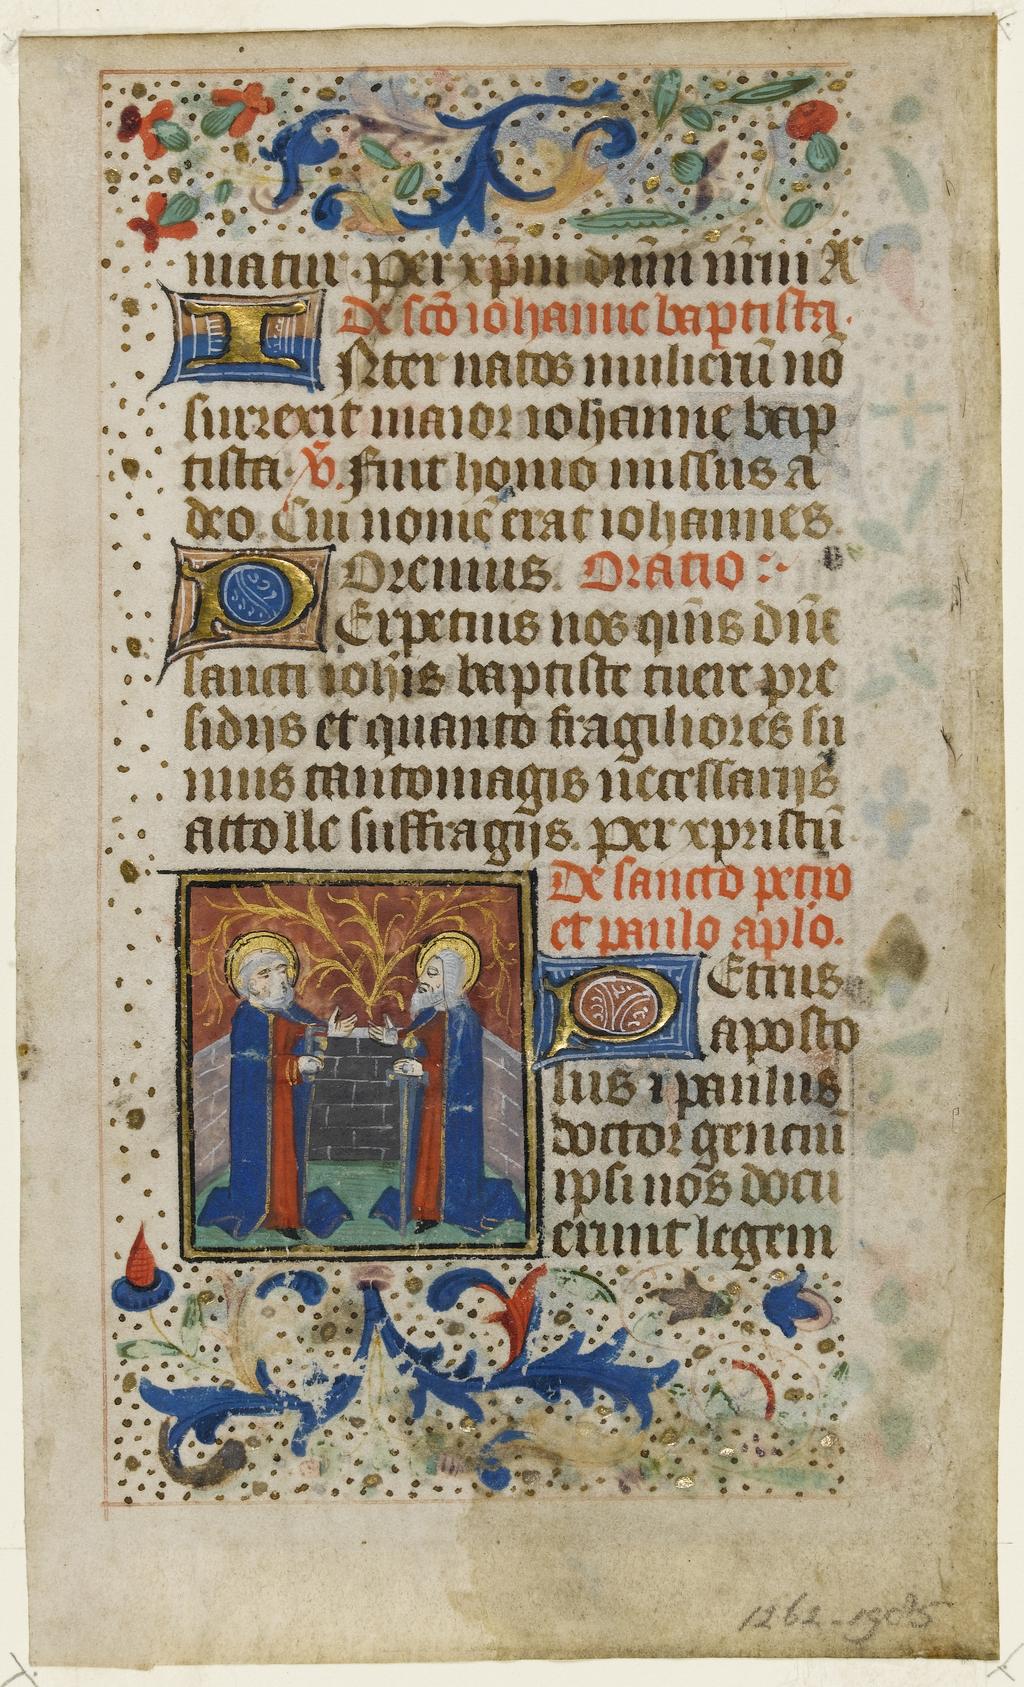 matur. per xp̄m dn̄m nr̄m A
De scō iohanne baptista.
INter natos mulierū nō
surrexit maior iohanne bap
tista. V̄. Fuit homo missus a
deo. Cui nomē erat iohannes.
Oremus. Oratio :·
PErpetuis nos qm̄s dn̄e
sancti ioh̄is baptiste tuere pre
sidijs et quanto fragiliores su
mus tantomagis necessarijs
attolle suffragijs. per xpristū.
De sancto petro
et paulo aplo.
PEtrus
aposto
lus ⁊ paulus
doctor gentiū
ipsi nos docu
erunt legem
1262-1985